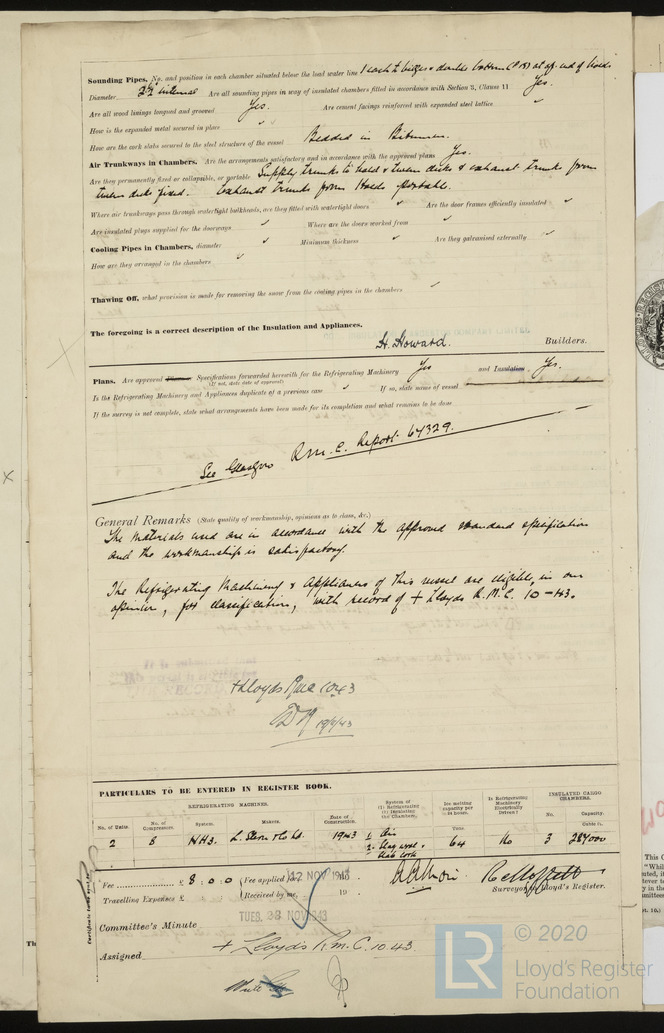 Sounding Pipes, No. and position in each chamber situated below the load water line 1 each to bilges & double bottom (P & S) at aft end of Holds
Diameter 2½" internal Are all sounding pipes in way of insulated chambers fitted in accordance with Section 3, Clause 11 Yes.
Are all wood linings tongued and grooved Yes. Are cement facings reinforced with expanded steel lattice ✓
How is the expanded metal secured in place ✓
How are the cork slabs secured to the steel structure of the vessel Bedded in Bitumen.
Air Trunkways in Chambers. Are the arrangements satisfactory and in accordance with the approved plans Yes.
Are they permanently fixed or collapsible, or portable Supply trunks to hold & tween decks & exhaust trunks from
tween decks fixed. Exhaust trunks from Holds portable.
Where air trunkways pass through watertight bulkheads, are they fitted with watertight doors ✓ Are the door frames efficiently insulated ✓
Are insulated plugs supplied for the doorways ✓ Where are the doors worked from ✓
Cooling Pipes in Chambers, diameter ✓ Minimum thickness ✓ Are they galvanised externally ✓
How are they arranged in the chambers ✓
Thawing Off, what provision is made for removing the snow from the cooling pipes in the chambers ✓
The foregoing is a correct description of the Insulation and Appliances.
H. Howard. Builders.
Plans. Are approved Plans Specifications forwarded herewith for the Refrigerating Machinery Yes and Insulation Yes.
(If not, state date of approval)
Is the Refrigerating Machinery and Appliances duplicate of a previous case ✓ If so, state name of vessel
If the survey is not complete, state what arrangements have been made for its completion and what remains to be done
See Glasgow R.M.C. Report 64329.
General Remarks (State quality of workmanship, opinions as to class, &c.)
The materials used are in accordance with the approved standard specification
and the workmanship is satisfactory.
The Refrigerating Machinery & Appliances of this vessel are eligible, in our
opinion, for classification, with record of + Lloyds R.M.C. 10-43.
+Lloyds RMC 10.43
PARTICULARS TO BE ENTERED IN REGISTER BOOK.
REFRIGERATING MACHINES.
No. of Units. No. of Compressors. System. Makers. Date of Construction. System of (1) Refrigerating (2) Insulating the Chambers. Ice melting capacity per 24 hours. Is Refrigerating Machinery Electrically Driven? INSULATED CARGO CHAMBERS. No. Capacity.
Tons. Cubic ft.
2 8 NH3. L. Stern & Co Ld. 1943 1. Air 64 No 3 287000
2. Slag wool &
slab cork
Fee £ 8 : 0 : 0 Fee applied for, 12 NOV 1943
Travelling Expenses £ Received by me, 19
Surveyor to Lloyd's Register.
TUES. 23 NOV 1943
Committee's Minute
Assigned + Lloyds R.M.C. 10.43.
© 2020
LR
Lloyd's Register
Foundation